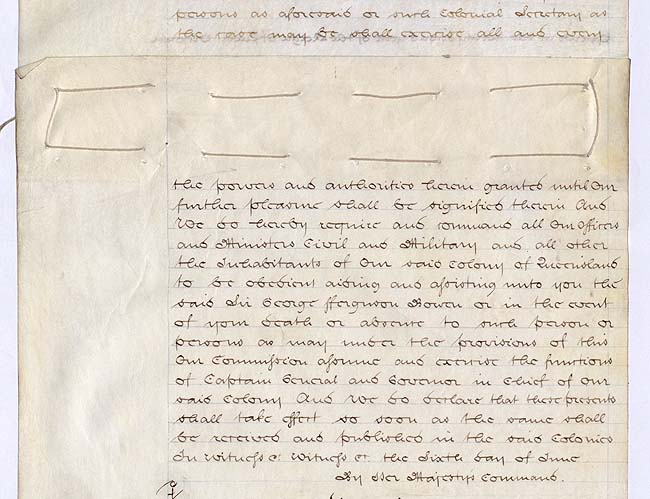 persons as aforesaid or such Colonial Secretary as
the case may be shall exercise all and every
the powers and authorities herein granted until Our
further pleasure shall be signified therein And
We do hereby require and command all Our Officers
and Ministers Civil and Military and all other
the Inhabitants of Our said Colony of Queensland
to be obedient aiding and assisting unto you the
said Sir George fferguson Bowen or in the event
of your death or absence to such person or
persons as may under the provisions of this
Our Commission assume and exercise the functions
of Captain General and Governor in Chief of Our
said Colony And We do declare that these presents
shall take effect so soon as the same shall
be received and published in the said Colonies
In Witness &c Witness &c the Sixth day of June
By Her Majestys Command.